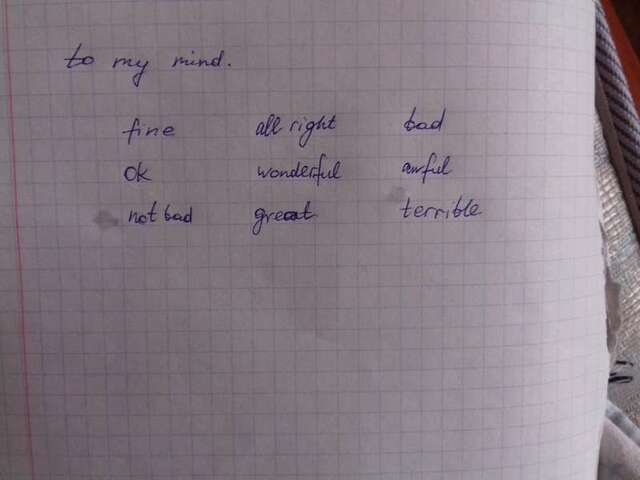 to my mind.
fine all right bad
ok wonderful awful
not bad great terrible